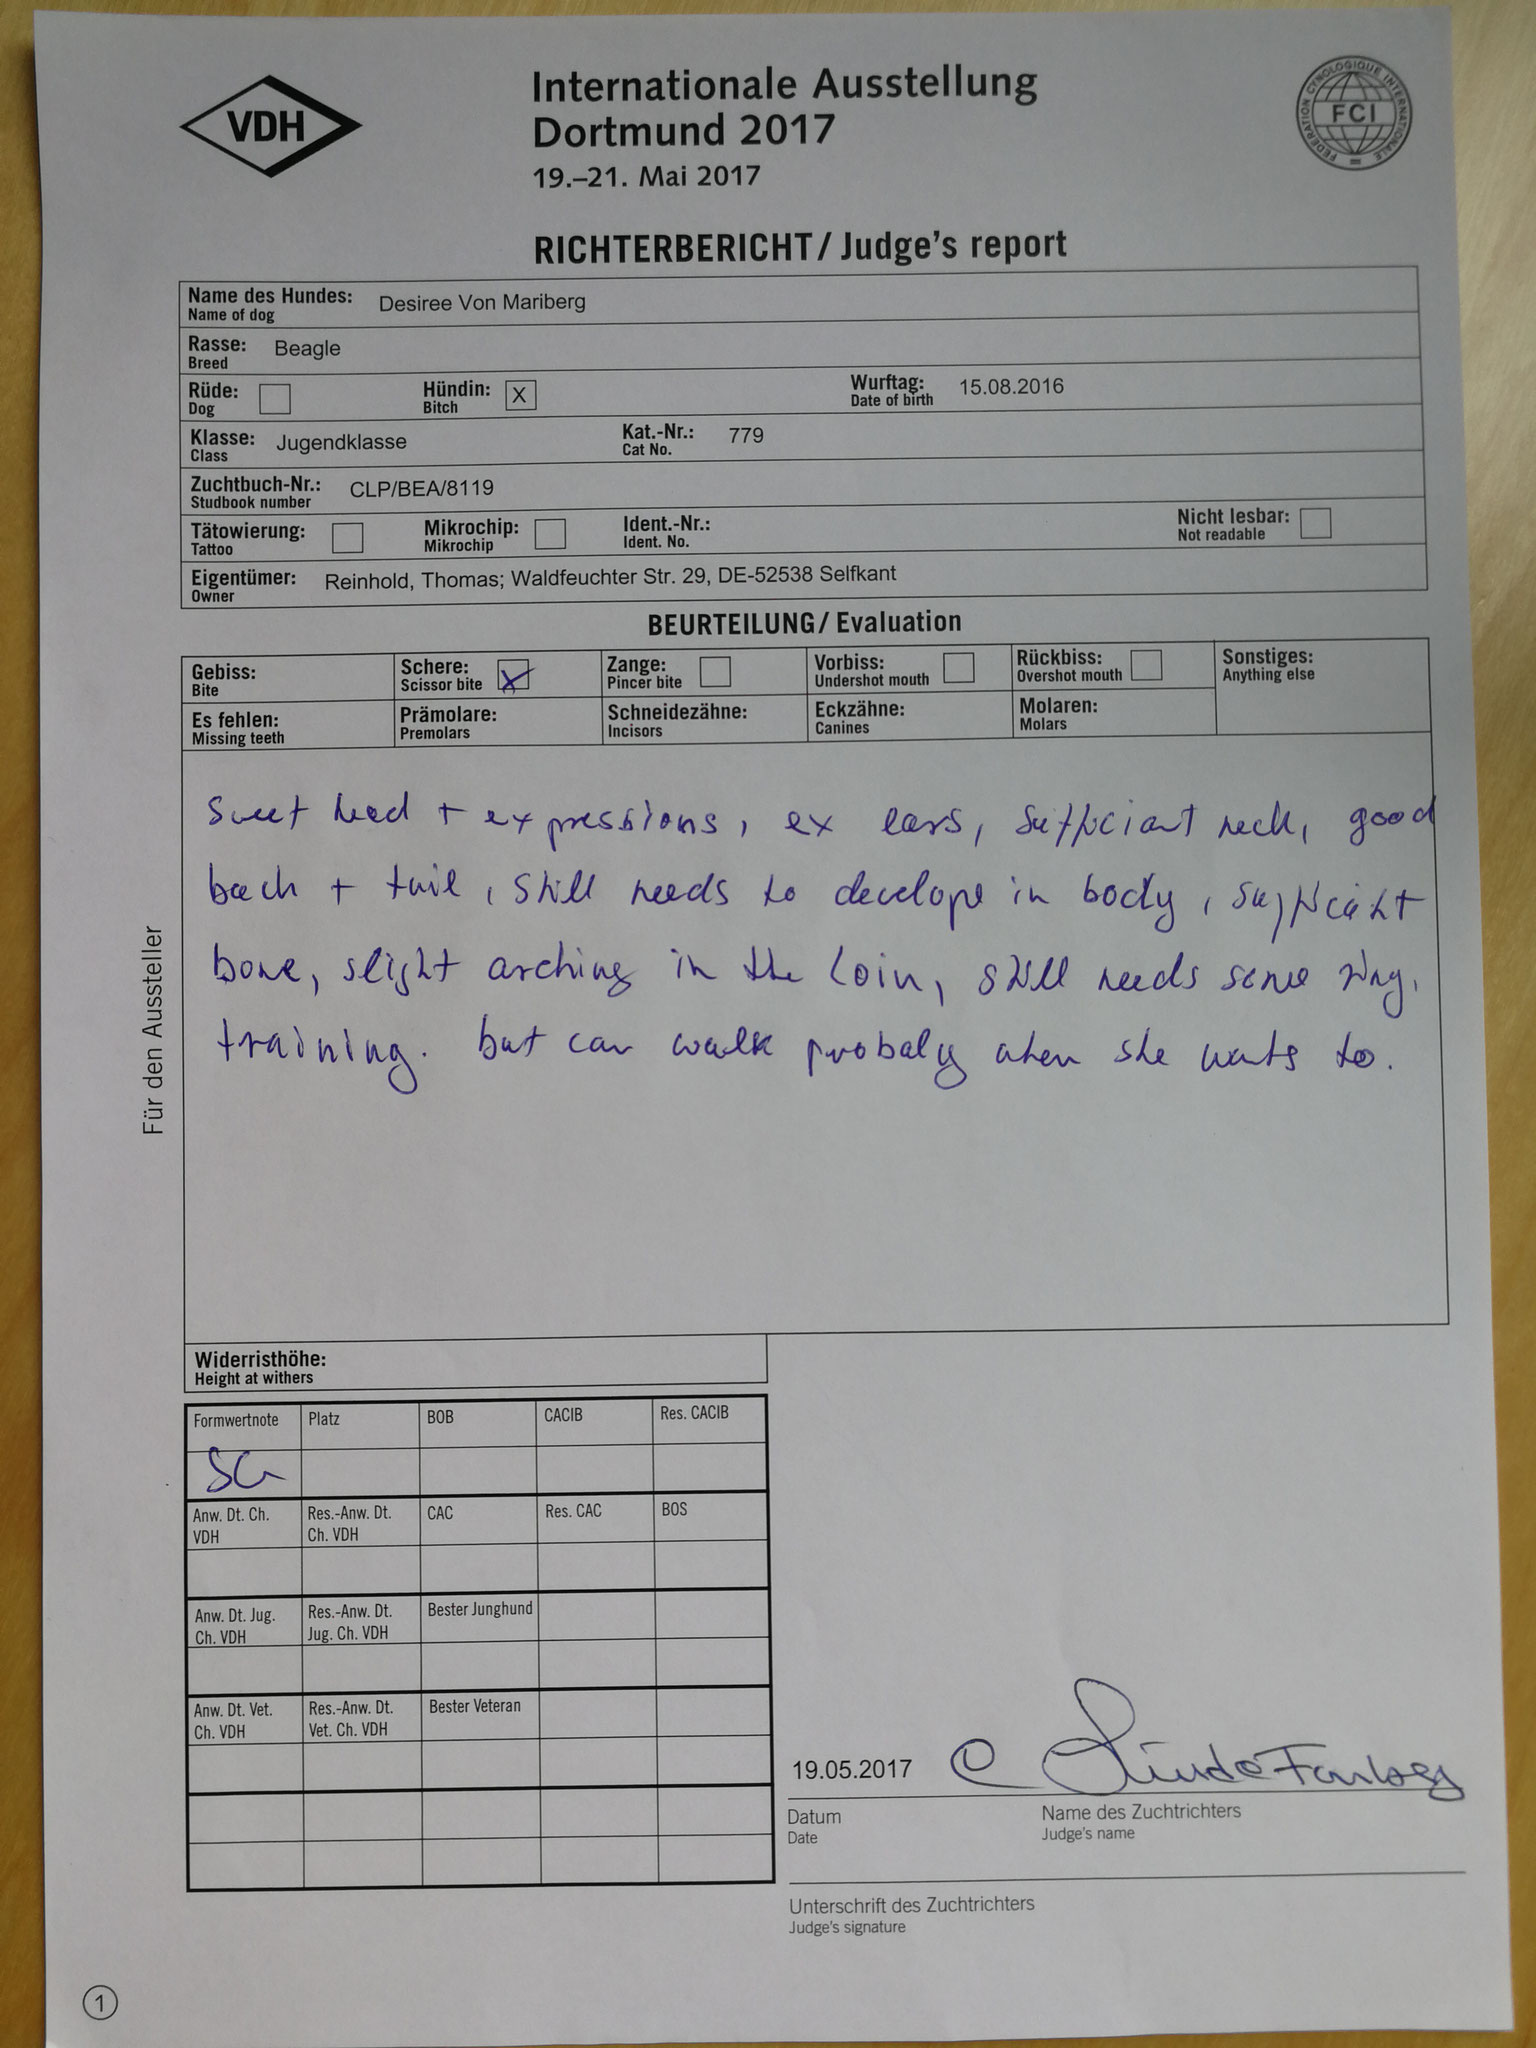 VDH
Internationale Ausstellung
Dortmund 2017
19.–21. Mai 2017
FEDERATION CYNOLOGIQUE INTERNATIONALE
FCI
RICHTERBERICHT / Judge's report
Name des Hundes: Desiree Von Mariberg
Name of dog
Rasse: Beagle
Breed
Rüde: Hündin: X Wurftag: 15.08.2016
Dog Bitch Date of birth
Klasse: Jugendklasse Kat.-Nr.: 779
Class Cat No.
Zuchtbuch-Nr.: CLP/BEA/8119
Studbook number
Tätowierung: Mikrochip: Ident.-Nr.: Nicht lesbar:
Tattoo Mikrochip Ident. No. Not readable
Eigentümer: Reinhold, Thomas; Waldfeuchter Str. 29, DE-52538 Selfkant
Owner
BEURTEILUNG / Evaluation
Gebiss: Schere: X Zange: Vorbiss: Rückbiss: Sonstiges:
Bite Scissor bite Pincer bite Undershot mouth Overshot mouth Anything else
Es fehlen: Prämolare: Schneidezähne: Eckzähne: Molaren:
Missing teeth Premolars Incisors Canines Molars
Sweet head + expressions, ex ears, sufficiant neck, good
back + tail, still needs to develope in body, sufficiant
bone, slight arching in the loin, still needs some ring,
training. but can walk probaly when she wants to.
Für den Aussteller
Widerristhöhe:
Height at withers
Formwertnote Platz BOB CACIB Res. CACIB
SG
Anw. Dt. Ch. Res.-Anw. Dt. CAC Res. CAC BOS
VDH Ch. VDH
Anw. Dt. Jug. Res.-Anw. Dt. Bester Junghund
Ch. VDH Jug. Ch. VDH
Anw. Dt. Vet. Res.-Anw. Dt. Bester Veteran
Ch. VDH Vet. Ch. VDH
19.05.2017
Datum Name des Zuchtrichters
Date Judge's name
Unterschrift des Zuchtrichters
Judge's signature
1